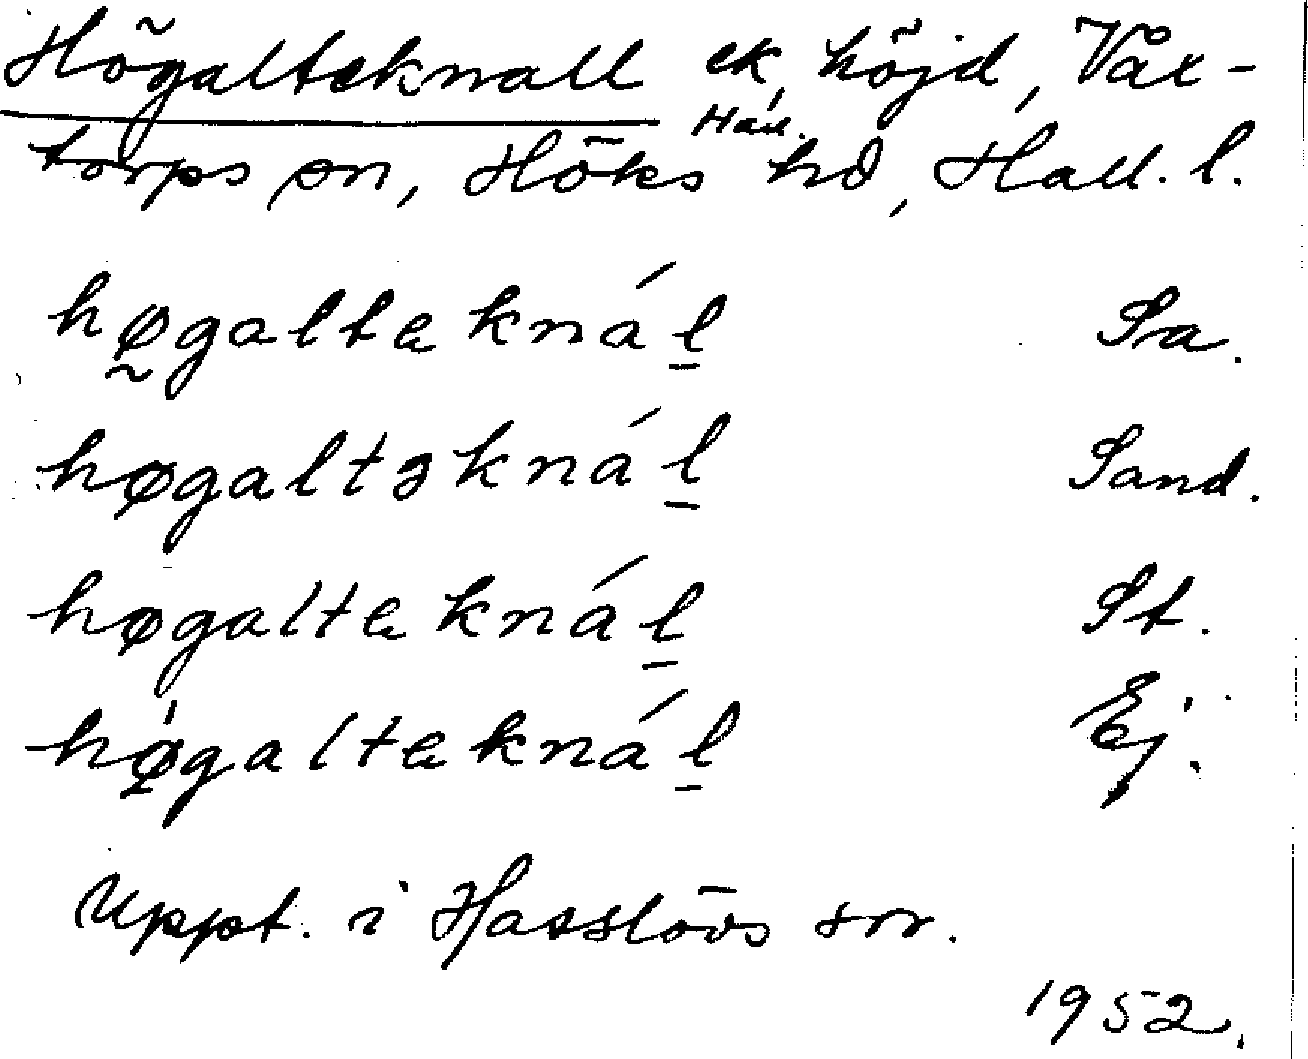 Högalteknall ek, höjd, Våx-
Hall.
torps sn, Höks hd, Hall. l.
høgaltæknál̲ Sa.
høgaltəknál̲ Sand.
høgaltæknál̲ St.
hø̍galtæknál̲ Ej.
Uppt. i Hasslövs sn.
1952.